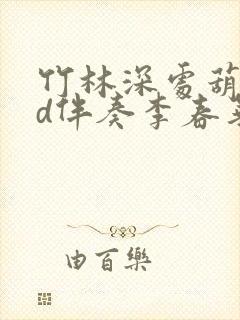 竹林深處葫
d伴奏李春
由百樂